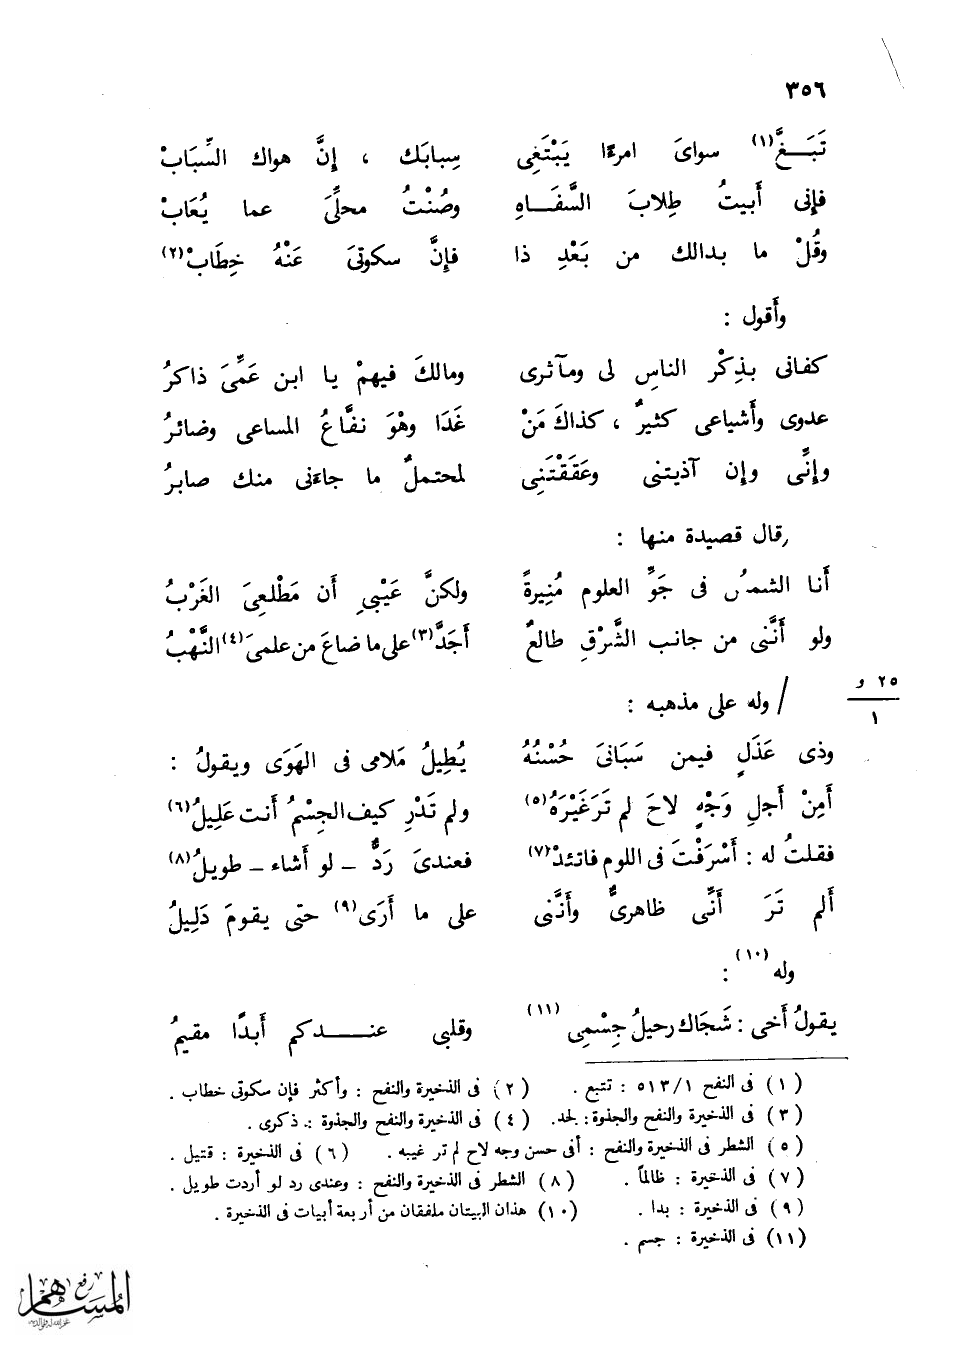 ٣٥٦
تَبَـــغَّ(١) سواىَ امرءًا يَبْتَغِى سِبابَك ، إنَّ هواك السِّبَابْ
فإنى أَبيتُ طِلابَ السَّفَـــاهِ وصُنْتُ محلِّىَ عما يُعَابْ
وقُلْ ما بدالك من بَعْدِ ذا فإِنَّ سكوتىَ عَنْهُ خِطَابْ(٢)
وأَقول :
كفانى بذِكْر الناسِ لى ومآثرى ومالكَ فيهمْ يا ابن عَمِّىَ ذاكرُ
عدوى وأَشياعى كثيرٌ ، كذاكَ مَنْ غَدَا وهْوَ نفَّاعُ المساعى وضائرُ
وإنِّى وإن آذيتنى وعَقَقْتَنِى لمحتملٌ ما جاءنى منك صابرُ
وقال قصيدة منها :
أَنا الشمسُ فى جَوِّ العلوم مُنِيرةً ولكنَّ عَيْبىِ أَن مَطْلعِىَ الغَرْبُ
ولو أَنَّنى من جانب الشَّرْقِ طالعٌ أَجَدَّ(٣) على ما ضاعَ من علمىَ(٤) النَّهْبُ
٢٥ و
١
/ وله على مذهبه :
وذى عَذَلٍ فيمن سَبَانىَ حُسْنُهُ يُطِيلُ مَلامى فى الهَوَى ويقولُ :
أَمِنْ أَجلِ وَجْهٍ لاحَ لم تَرَ غَيْرَهُ(٥) ولم تَدْرِ كيف الجِسْمُ أَنت عَلِيلُ(٦)
فقلتُ له : أَسْرَفْتَ فى اللوم فاتئدْ(٧) فعندىَ رَدٌّ – لو أَشاء – طويلُ(٨)
أَلم تَرَ أَنِّى ظاهرىٌّ وأَنَّنى على ما أَرَى(٩) حتى يقومَ دَلِيلُ
وله(١٠) :
يقولُ أَخى : شَجَاك رحيلُ جِسْمِى(١١) وقلبى عنـــــدكم أَبدًا مقيمُ
(١) فى النفح ٥١٣/١ : تتبع . (٢) فى الذخيرة والنفح : وأكثر فإن سكوتى خطاب .
(٣) فى الذخيرة والنفح والجذوة : لجد . (٤) فى الذخيرة والنفح والجذوة : ذكرى .
(٥) الشطر فى الذخيرة والنفح : أفى حسن وجه لاح لم تر غيبه . (٦) فى الذخيرة : قتيل .
(٧) فى الذخيرة : ظالماً . (٨) الشطر فى الذخيرة والنفح : وعندى رد لو أردت طويل .
(٩) فى الذخيرة : بدا . (١٠) هذان البيتان ملفقان من أربعة أبيات فى الذخيرة .
(١١) فى الذخيرة : جسم .
رفع
المساهم